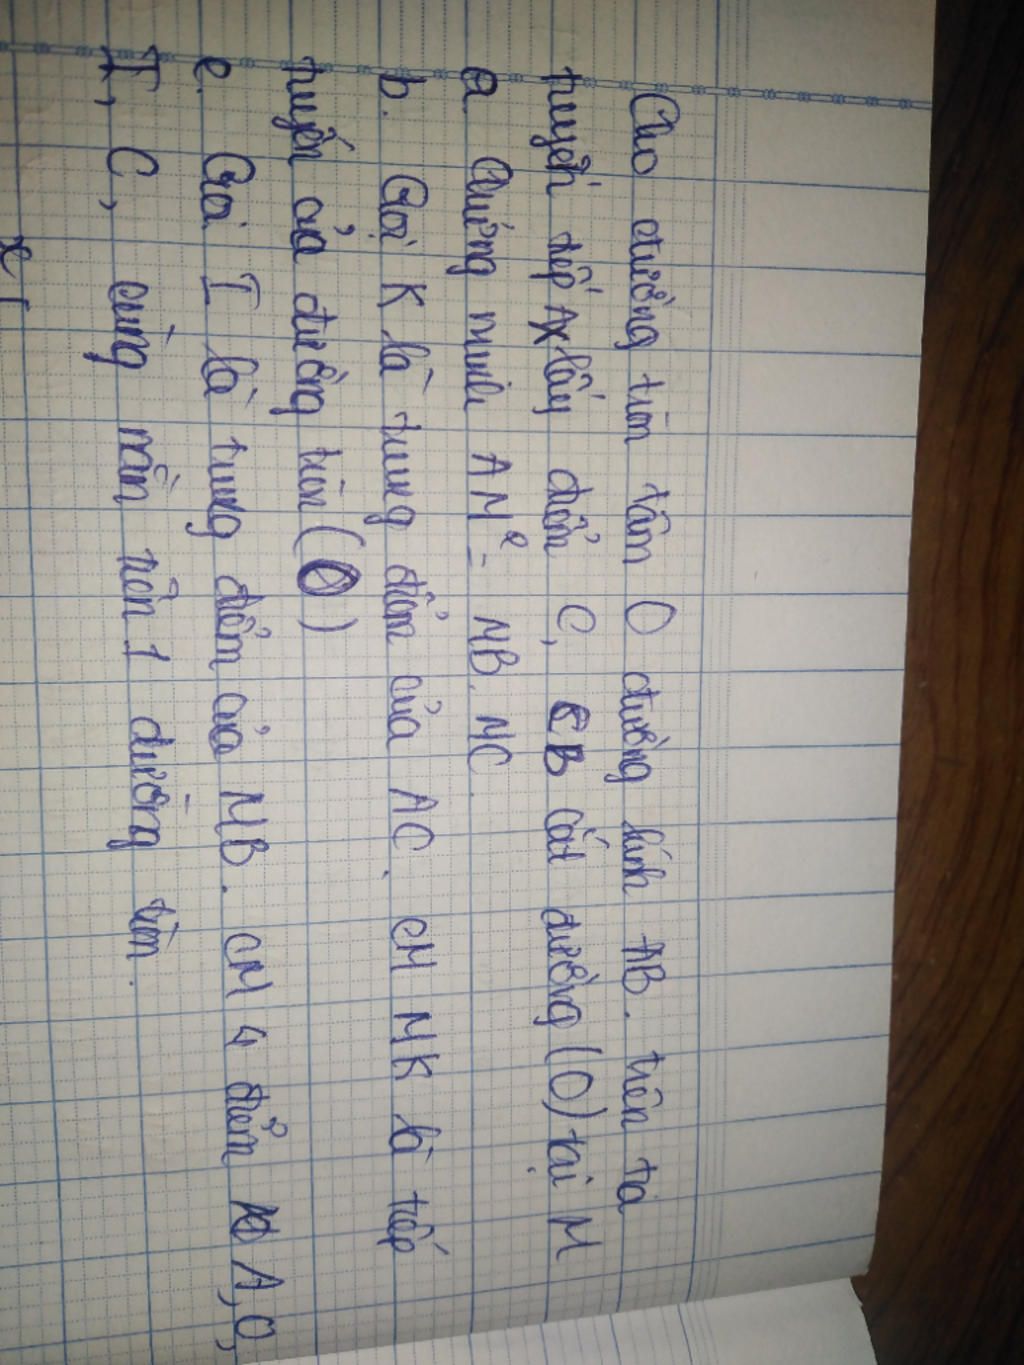 Cho đường tròn tâm O đường kính AB. trên ta
tuyến tiếp Ax lấy điểm C, CB cắt đường (O) tại M
a. Chứng minh AM² = MB. MC.
b. Gọi K là trung điểm của AC. CM MK là tiếp
tuyến của đường tròn (O)
c. Gọi I là trung điểm của MB. CM 4 điểm A, O,
I, C, cùng nằm trên 1 đường tròn.
x